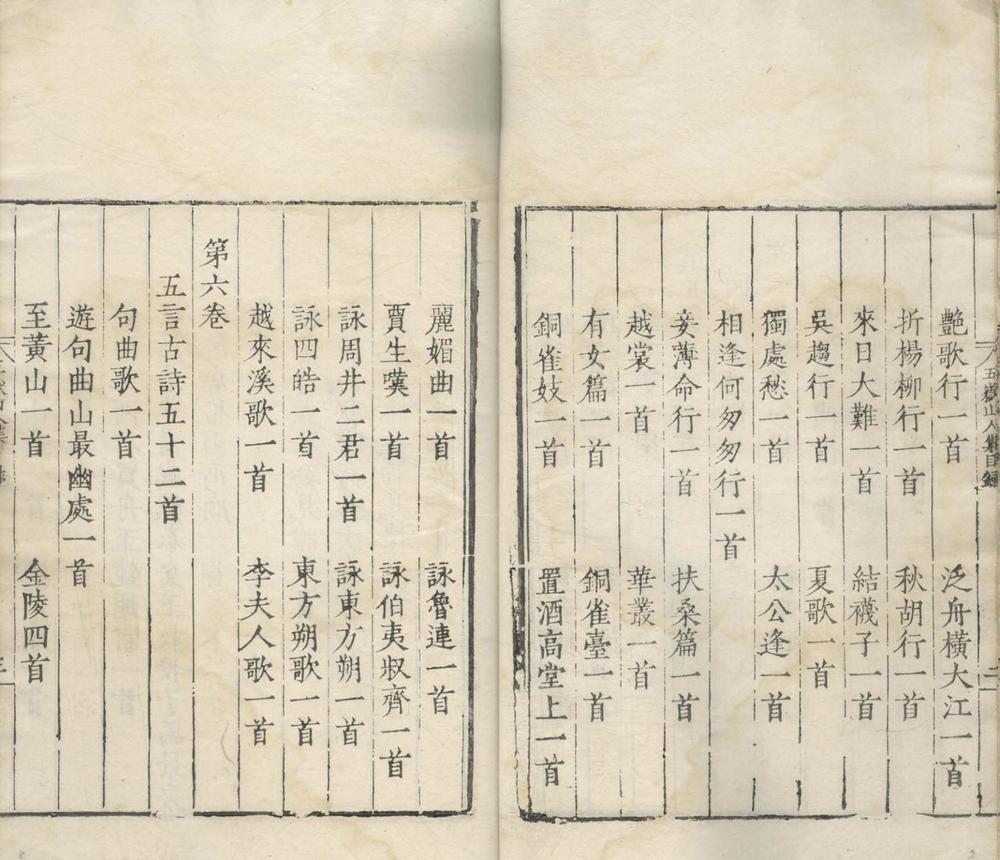 五嶽山人集目錄
艷歌行一首 泛舟橫大江一首
折楊柳行一首 秋胡行一首
來日大難一首 結襪子一首
吳趨行一首 夏歌一首
獨處愁一首 太公逢一首
相逢何匆匆行一首
妾薄命行一首 扶桑篇一首
越裳一首 華叢一首
有女篇一首 銅雀臺一首
銅雀妓一首 置酒高堂上一首
麗媚曲一首 詠魯連一首
賈生嘆一首 詠伯夷叔齊一首
詠周井二君一首 詠東方朔一首
詠四皓一首 東方朔歌一首
越來溪歌一首 李夫人歌一首
第六卷
五言古詩五十二首
句曲歌一首
遊句曲山最幽處一首
至黃山一首 金陵四首